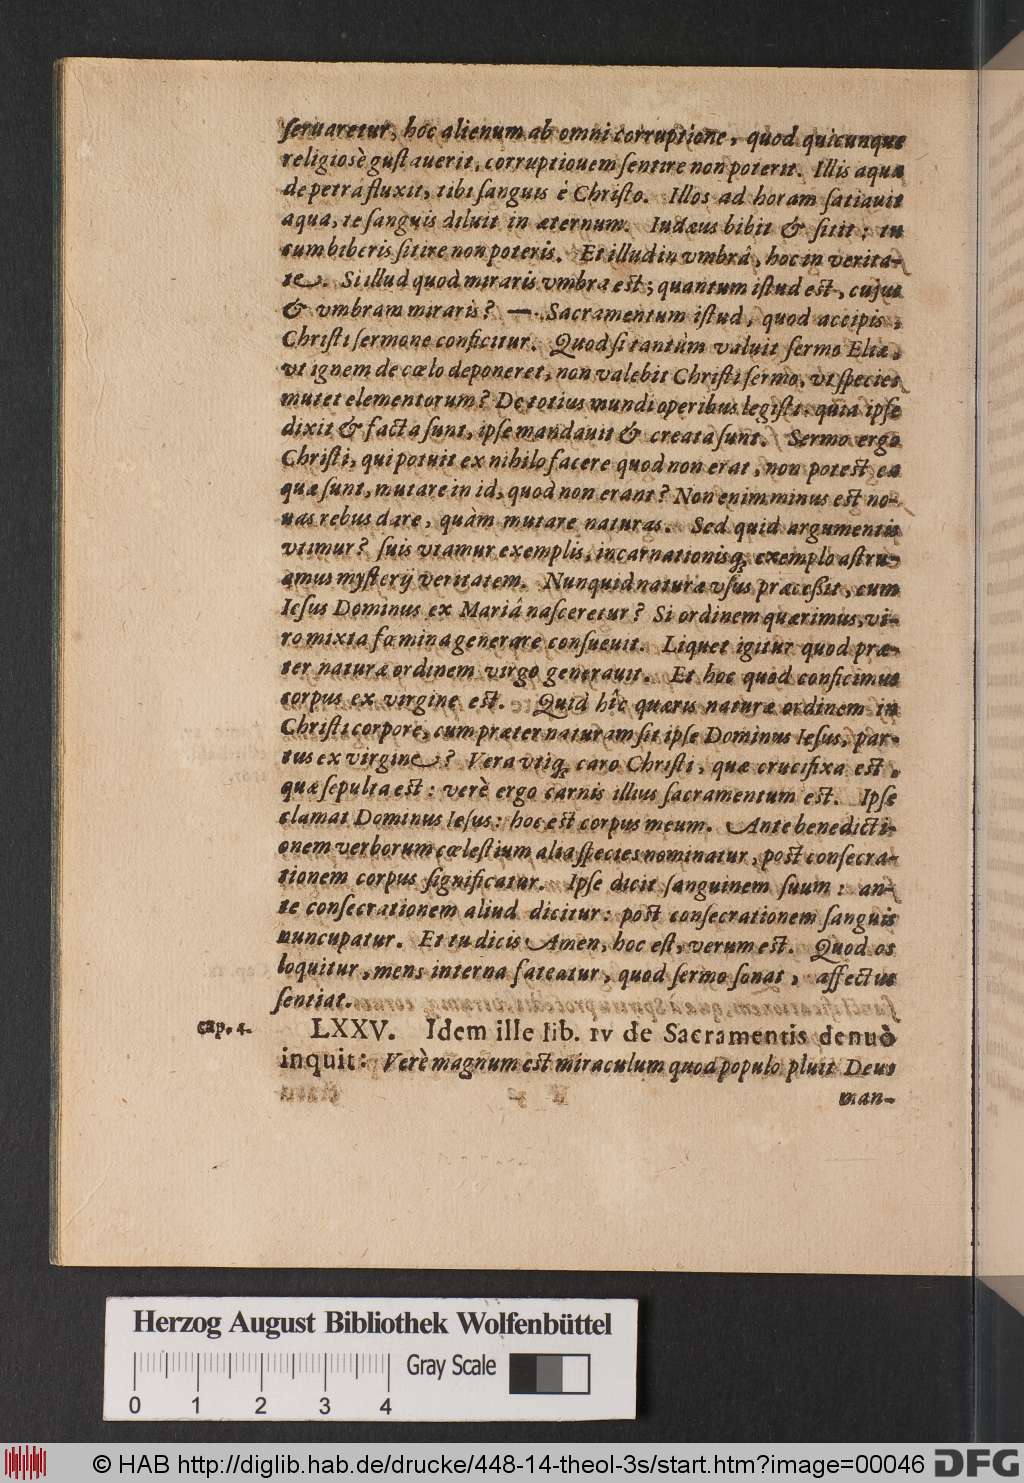 ſeruaretur, hoc alienum ab omni corruptione, quod quicunque
religiosè guſtauerit, corruptiouem ſentire non poterit. Illis aqua
de petrâ fluxit, tibi ſanguis è Chriſto. Illos ad horam ſatiauit
aqua, te ſanguis diluit in æternum. Iudæus bibit & ſitit: tu
cum biberis ſitire non poteris. Et illud in vmbrâ, hoc in verita-
te. Si illud quod miraris vmbra eſt; quantum iſtud eſt, cujus
& vmbram miraris? —. Sacramentum iſtud, quod accipis,
Chriſti ſermone conficitur. Quod ſi tantùm valuit ſermo Eliæ,
vt ignem de cœlo deponeret, non valebit Chriſti ſermo, vt ſpecies
mutet elementorum? De totius mundi operibus legiſti: quia ipſe
dixit & facta ſunt, ipſe mandauit & creata ſunt. Sermo ergo
Chriſti, qui potuit ex nihilo facere quod non erat, non poteſt ea
quæ ſunt, mutare in id, quod non erant? Non enim minus eſt no-
uas rebus dare, quàm mutare naturas. Sed quid argumentis
vtimur? ſuis vtamur exemplis, incarnationisq; exemplo aſtru-
amus myſterij veritatem. Nunquid naturæ vſus præceßit, cum
Ieſus Dominus ex Mariâ naſceretur? Si ordinem quærimus, vi-
ro mixta fœmina generare conſueuit. Liquet igitur quod præ-
ter naturæ ordinem virgo generauit. Et hoc quod conficimus
corpus ex virgine eſt. Quid hîc quæris naturæ ordinem in
Chriſti corpore, cum præter naturam ſit ipſe Dominus Ieſus, par-
tus ex virgine? Vera vtiq; caro Chriſti, quæ crucifixa eſt,
quæ ſepulta eſt: verè ergo carnis illius ſacramentum eſt. Ipſe
clamat Dominus Ieſus: hoc eſt corpus meum. Ante benedicti-
onem verborum cœleſtium alia ſpecies nominatur, poſt conſecra-
tionem corpus ſignificatur. Ipſe dicit ſanguinem ſuum: an-
te conſecrationem aliud dicitur: poſt conſecrationem ſanguis
nuncupatur. Et tu dicis Amen, hoc eſt, verum eſt. Quod os
loquitur, mens interna fateatur, quod ſermo ſonat, affectus
ſentiat.
cap. 4.
LXXV. Idem ille lib. IV de Sacramentis denuò
inquit: Verè magnum eſt miraculum quod populo pluit Deus
man-
Herzog August Bibliothek Wolfenbüttel
Gray Scale
0 1 2 3 4
© HAB http://diglib.hab.de/drucke/448-14-theol-3s/start.htm?image=00046
DFG